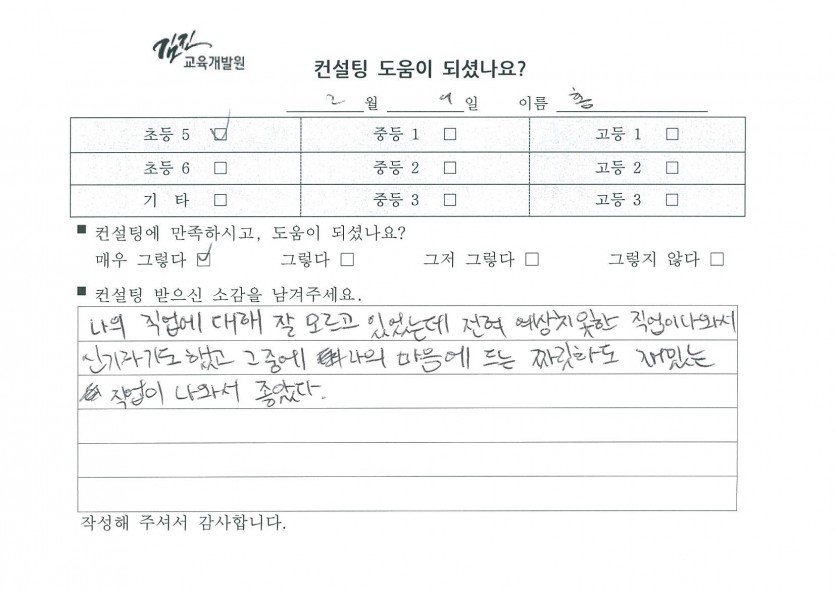 김진
교육개발원
컨설팅 도움이 되셨나요?
2 월 9 일 이름 홍
초등 5 ☑ 중등 1 □ 고등 1 □
초등 6 □ 중등 2 □ 고등 2 □
기 타 □ 중등 3 □ 고등 3 □
■ 컨설팅에 만족하시고, 도움이 되셨나요?
매우 그렇다 ☑ 그렇다 □ 그저 그렇다 □ 그렇지 않다 □
■ 컨설팅 받으신 소감을 남겨주세요.
나의 직업에 대해 잘 모르고 있었는데 전혀 예상치 못한 직업이 나와서
신기하기도 했고 그중에 나의 마음에 드는 짜릿하도 재밌는
직업이 나와서 좋았다.
작성해 주셔서 감사합니다.